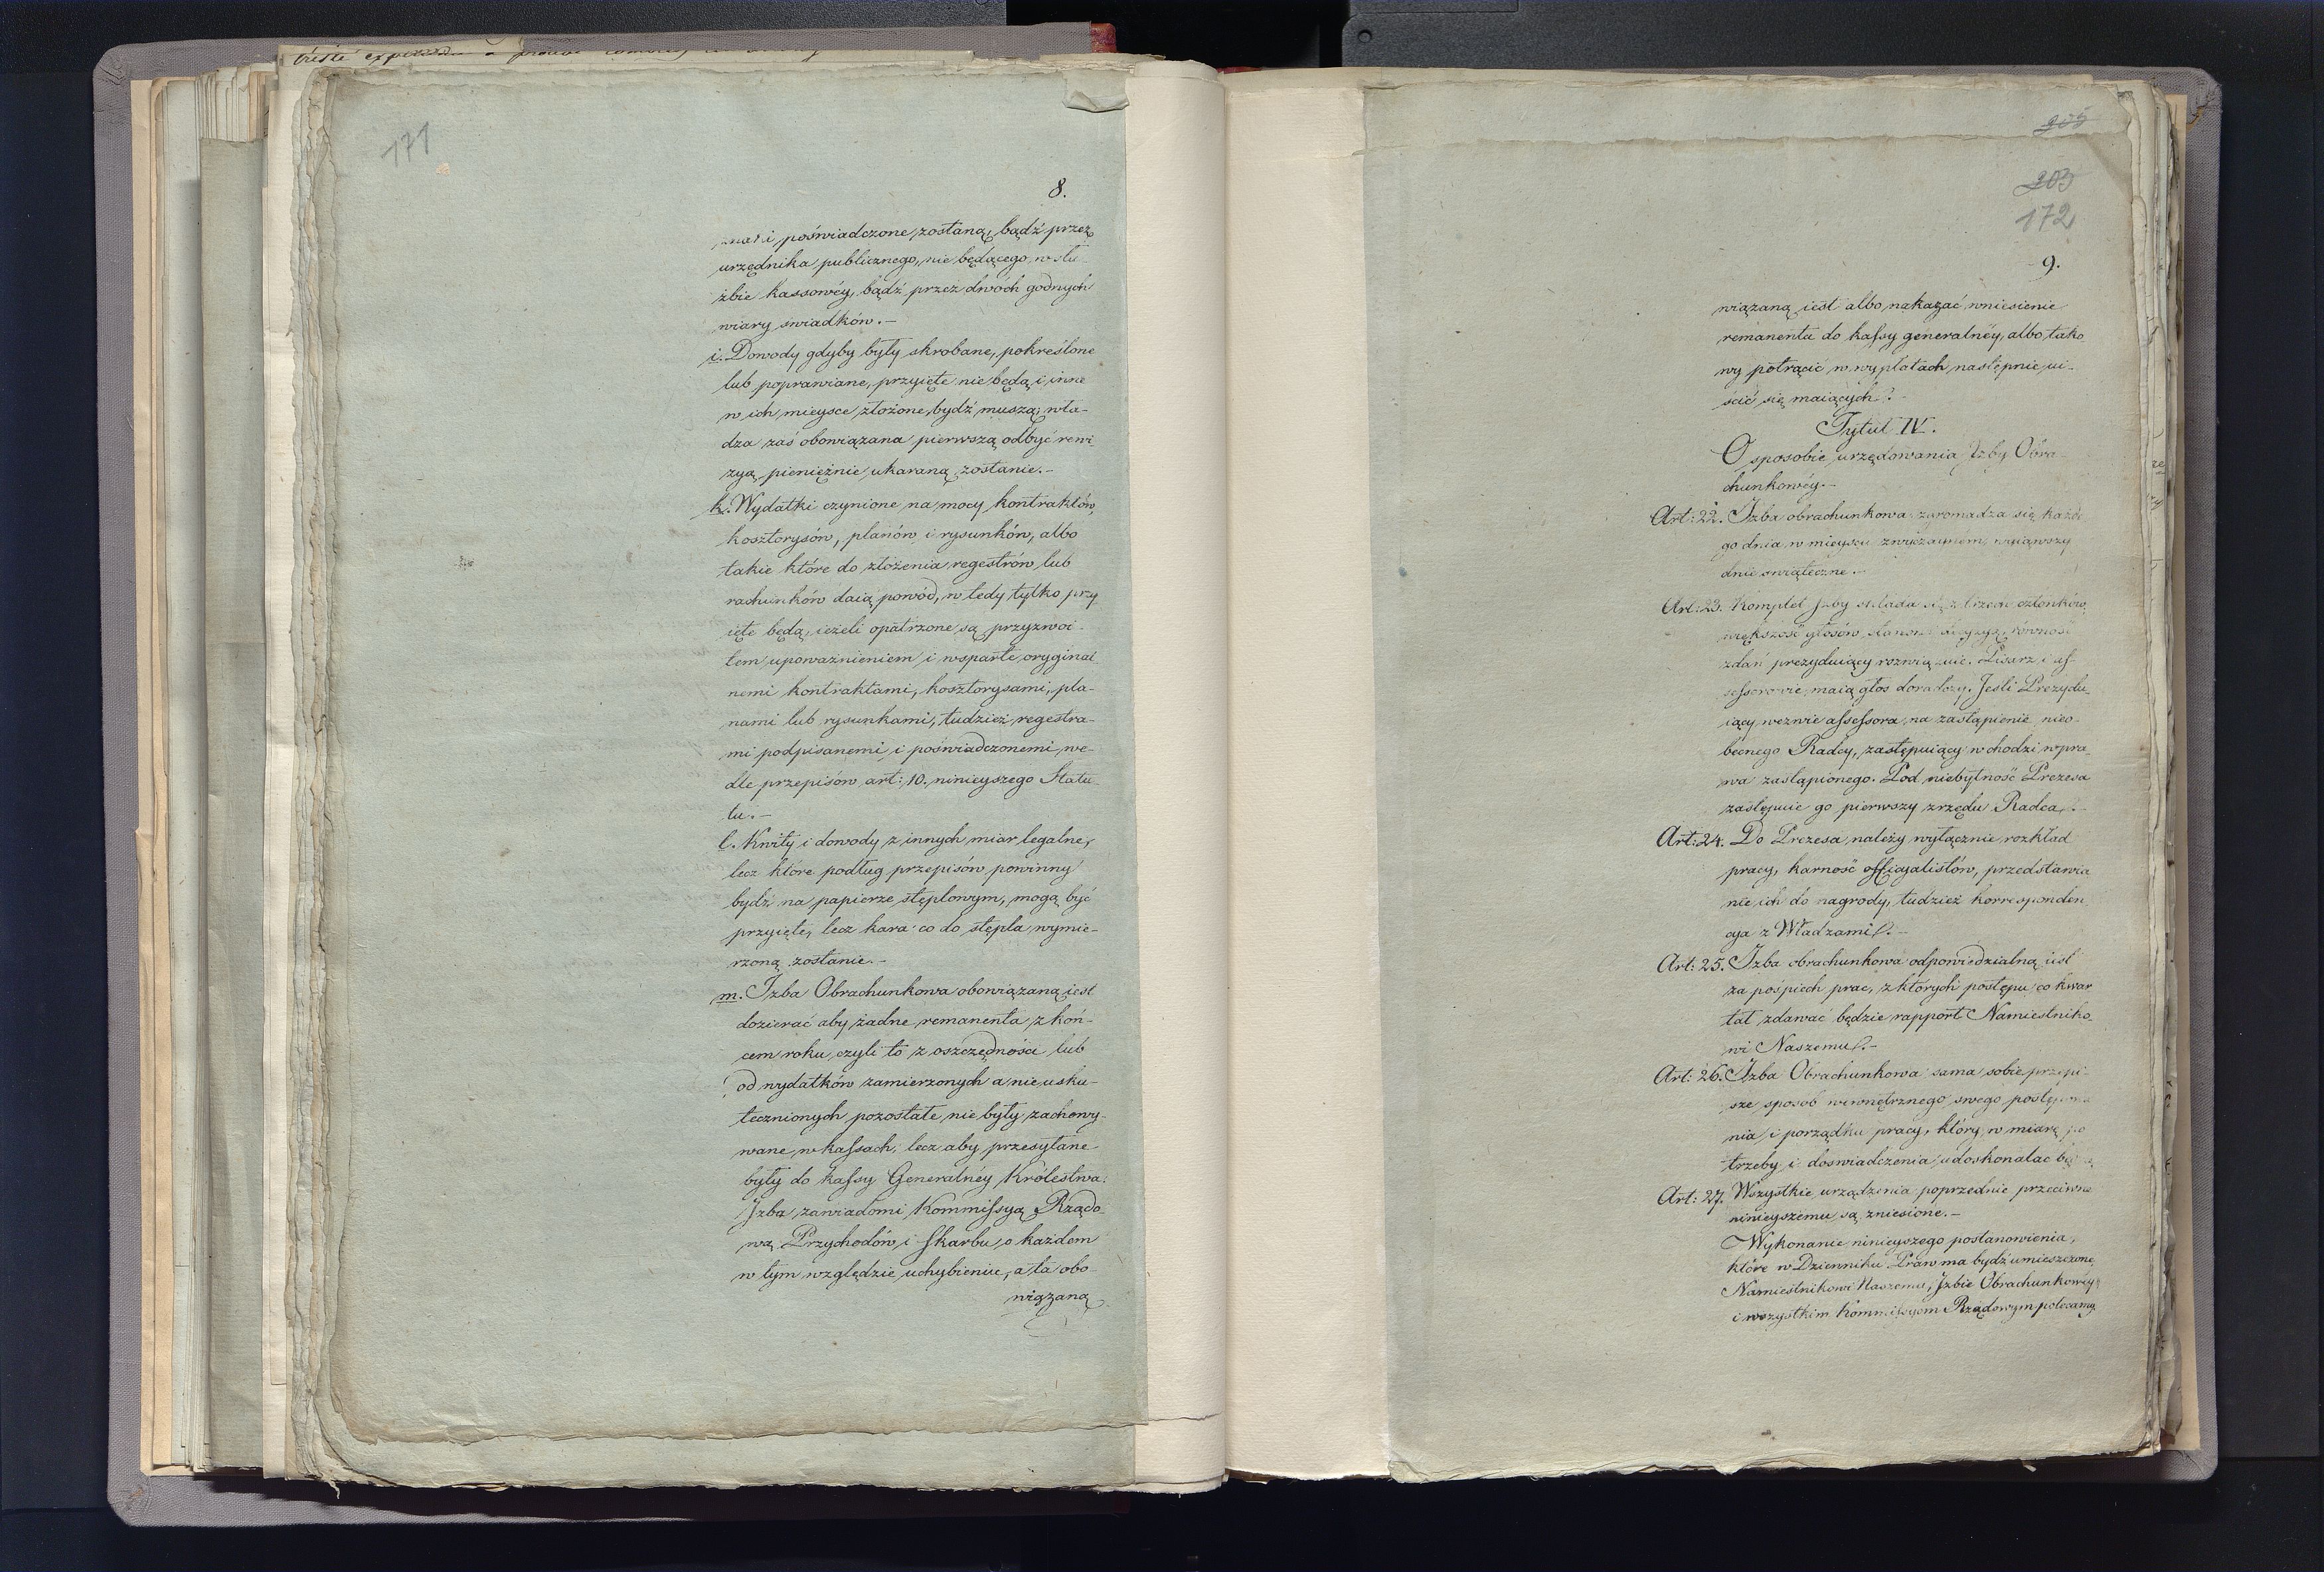 171
8.
i poświadczone zostaną, bądź przez
urzędnika publicznego, nie będącego w słu-
żbie kassowéy, bądź przez dwóch godnych
wiary swiadków.-
i. Dowody gdyby były skrobane, pokreślone
lub poprawiane, przyięte nie będą i inne
w ich mieysce złożone bydź muszą, wła-
dza zaś obowiązana pierwszą odbyć rewi
zyą, pieniężnie ukaraną zostanie.-
k. Wydatki czynione na mocy kontraktów,
kosztorysów, planów i rysunków, albo
takie które do złożenia regestrów lub
rachunków daią powód, w tedy tylko przy
ięte będą, ieżeli opatrzone są przyzwoi-
tem upoważnieniem i wsparte oryginal
nemi kontraktami, kosztorysami, pla-
nami lub rysunkami, tudzież regestra-
mi podpisanemi i poświadczonemi we-
dle przepisów art: 10. ninieyszego Statu-
tu.-
l. Kwity i dowody z innych miar legalne,
lecz które podług przepisów powinny
bydź na papierze stęplowym, mogą być
przyięte, lecz kara co do stępla wymie-
rzoną zostanie.-
m. Izba Obrachunkowa obowiązaną iest
dozierać aby żadne remanenta z koń-
cem roku, czyli to z oszczędności lub
od wydatków zamierzonych a nie usku-
tecznionych pozostałe nie były zachowy-
wane w kassach, lecz aby przesyłane
były do kassy Generalnéy Królestwa.
Izba zawiadomi Kommissyą Rządo-
wą Przychodów i Skarbu, o każdem
w tym względzie uchybieniu, a ta obo-
wiązaną
205
203
172
9.
wiązaną iest albo nakazać wniesienie
remanentu do kassy generalnéy, albo tako
wy potrącić w wypłatach następnie ui-
ścić się maiących.-
Tytuł IV.
O sposobie urzędowania Izby Obra-
chunkowéy.-
Art: 22. Izba obrachunkowa zgromadza się każde
go dnia w mieyscu zwyczaynem, wyiąwszy
dnie swiąteczne.-
Art: 23. Komplet Izby składa się z trzech członków,
większość głosów stanowi decyzyę, równość
zdań prezyduiący rozwiązuie. Pisarz i as-
sessorowie maią głos doradczy. Jeśli Prezydu-
iący wezwie assessora, na zastąpienie nieo-
becnego Radcy, zastępuiący wchodzi w pra-
wa zastąpionego. Pod niebytność Prezesa
zastępuie go pierwszy z rzędu Radca.-
Art: 24. Do Prezesa należy wyłącznie rozkład
pracy, karność officyalistów, przedstawia
nie ich do nagrody, tudzież korresponden
cya z Władzami.-
Art: 25. Izba obrachunkowa odpowiedzialną iest
za pośpiech prac, z których postępu co kwar
tał zdawać będzie rapport Namiestniko-
wi Naszemu.-
Art: 26. Izba Obrachunkowa sama sobie przepi-
sze sposob wewnętrznego swego postępowa
nia, i porządku pracy, który w miarę po
trzeby i doswiadczenia udoskonalac będzie
Art: 27. Wszystkie urządzenia poprzednie przeciwne
ninieyszemu są zniesione.-
Wykonanie ninieyszego postanowienia,
które w Dzienniku Praw ma bydź umieszczone,
Namiestnikowi Naszemu, Izbie Obrachunkowéy
i wszystkim Kommissyom Rządowym polecamy.